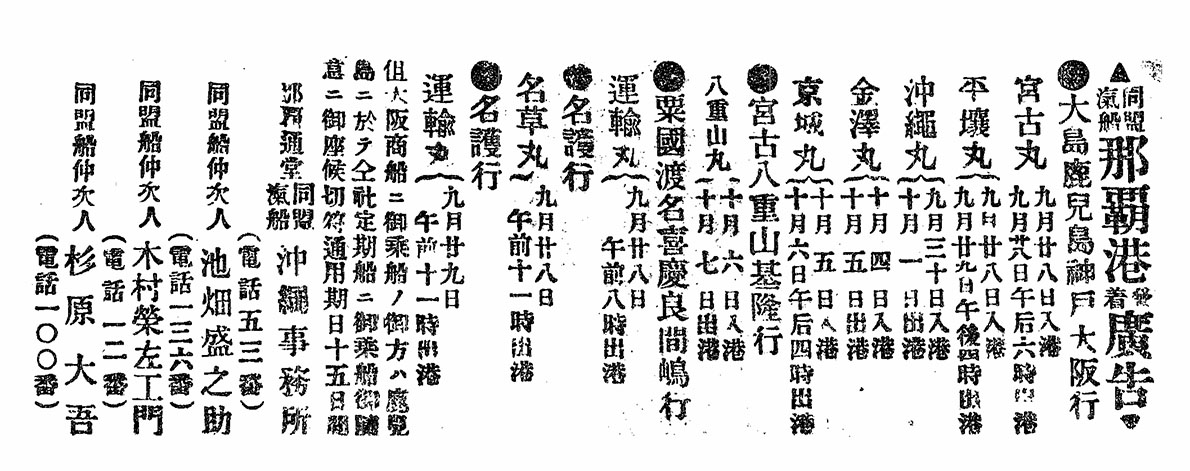 ▲同盟汽船那覇港發着廣告▼
●大島鹿兒島神戸大阪行
宮古丸 九月廿八日入港
九月廿八日午后六時出港
平壤丸 九月廿八日入港
九月廿九日午後四時出港
沖繩丸 九月三十日入港
十月一日出港
金澤丸 十月四日入港
十月五日出港
京城丸 十月五日入港
十月六日午后四時出港
●宮古八重山基隆行
八重山丸 十月六日入港
十月七日出港
●粟國渡名喜慶良間嶋行
運輸丸 九月廿八日
午前八時出港
●名護行
名草丸 九月廿八日
午前十一時出港
●名護行
運輸丸 九月廿九日
午前十一時出港
但大阪商船ニ御乘船ノ御方ハ鹿兒
島ニ於テ仝社定期船ニ御乘船御隨
意ニ御座候切符通用期日十五日間
那覇通堂 同盟汽船 沖繩事務所
(電話五三番)
同盟船仲次人 池畑盛之助
(電話一三六番)
同盟船仲次人 木村榮左工門
(電話一二番)
同盟船仲次人 杉原大吾
(電話一〇〇番)